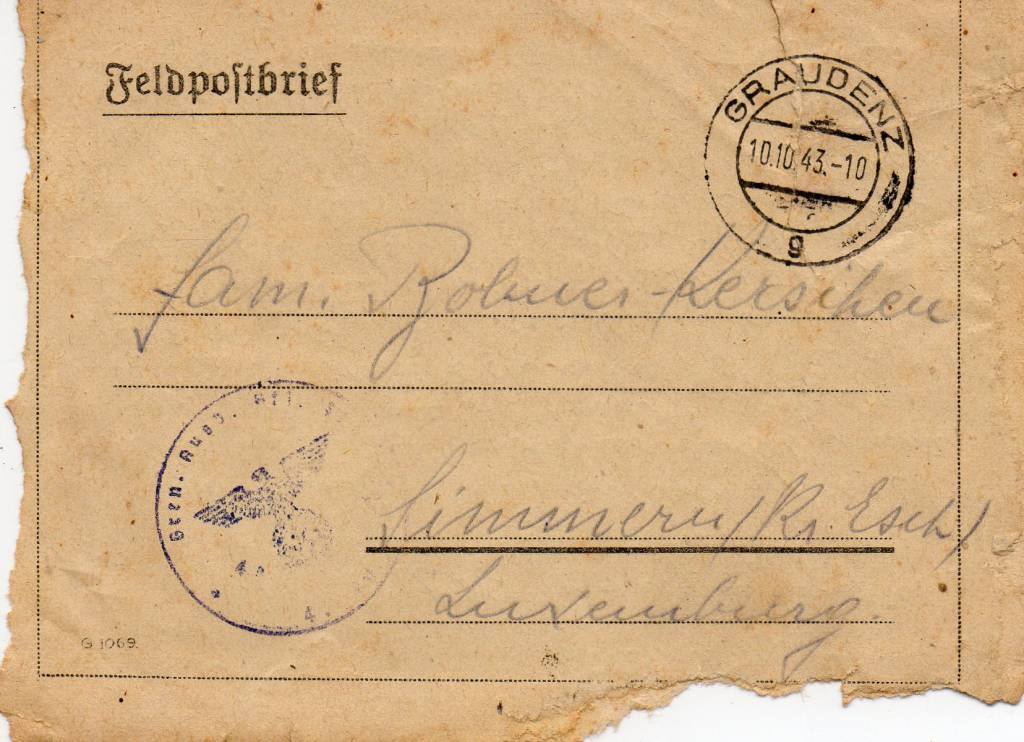 Feldpostbrief
GRAUDENZ
10.10.43.-10
g
Fam. Bobner-Kerschen
Gren. Ausb. Btl.
4.
Simmern (Kr. Esch)
Luxemburg.
G 1069.